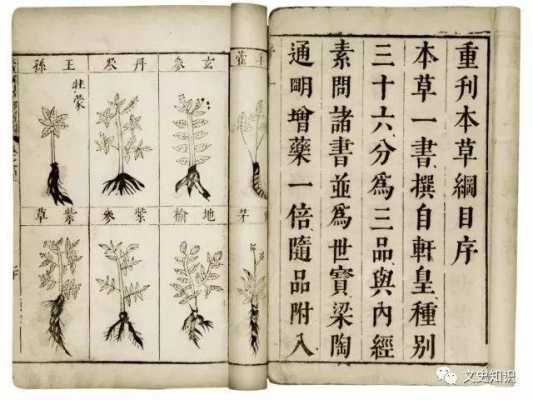 重刊本草綱目序
本草一書撰自軒皇種別
三十六分爲三品與內經
素問諸書並爲世寶梁陶
通明增藥一倍隨品附入
玄參
丹參
王孫
牡蒙
地榆
紫參
紫草
文史知识